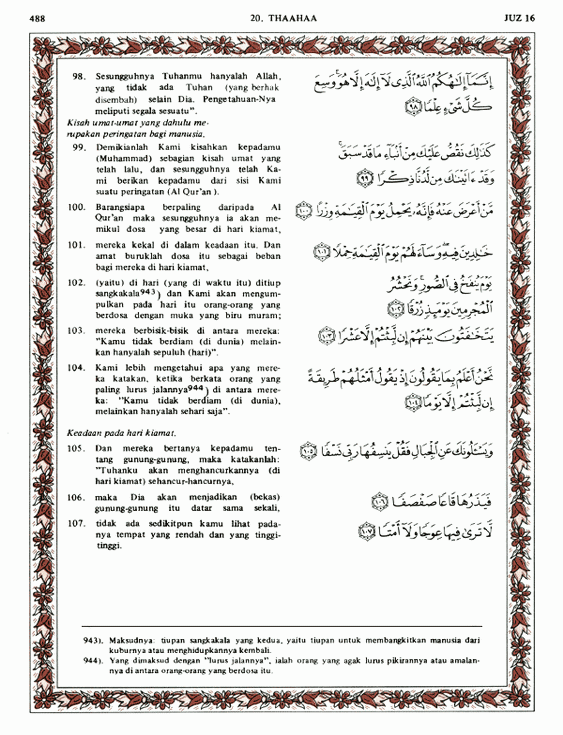 488
20. THAAHAA
JUZ 16
98. Sesungguhnya Tuhanmu hanyalah Allah,
yang tidak ada Tuhan (yang berhak
disembah) selain Dia. Pengetahuan-Nya
meliputi segala sesuatu".
إِنَّمَآ إِلَٰهُكُمُ ٱللَّهُ ٱلَّذِى لَآ إِلَٰهَ إِلَّا هُوَ ۚ وَسِعَ
كُلَّ شَىْءٍ عِلْمًا ﴿٩٨﴾
Kisah umat-umat yang dahulu me-
rupakan peringatan bagi manusia.
99. Demikianlah Kami kisahkan kepadamu
(Muhammad) sebagian kisah umat yang
telah lalu, dan sesungguhnya telah Ka-
mi berikan kepadamu dari sisi Kami
suatu peringatan (Al Qur'an ).
كَذَٰلِكَ نَقُصُّ عَلَيْكَ مِنْ أَنۢبَآءِ مَا قَدْ سَبَقَ ۚ
وَقَدْ ءَاتَيْنَٰكَ مِن لَّدُنَّا ذِكْرًا ﴿٩٩﴾
100. Barangsiapa berpaling daripada Al
Qur'an maka sesungguhnya ia akan me-
mikul dosa yang besar di hari kiamat,
مَّنْ أَعْرَضَ عَنْهُ فَإِنَّهُۥ يَحْمِلُ يَوْمَ ٱلْقِيَٰمَةِ وِزْرًا ﴿١٠٠﴾
101. mereka kekal di dalam keadaan itu. Dan
amat buruklah dosa itu sebagai beban
bagi mereka di hari kiamat,
خَٰلِدِينَ فِيهِ ۖ وَسَآءَ لَهُمْ يَوْمَ ٱلْقِيَٰمَةِ حِمْلًا ﴿١٠١﴾
102. (yaitu) di hari (yang di waktu itu) ditiup
sangkakala943) dan Kami akan mengum-
pulkan pada hari itu orang-orang yang
berdosa dengan muka yang biru muram;
يَوْمَ يُنفَخُ فِى ٱلصُّورِ ۚ وَنَحْشُرُ
ٱلْمُجْرِمِينَ يَوْمَئِذٍ زُرْقًا ﴿١٠٢﴾
103. mereka berbisik-bisik di antara mereka:
"Kamu tidak berdiam (di dunia) melain-
kan hanyalah sepuluh (hari)".
يَتَخَٰفَتُونَ بَيْنَهُمْ إِن لَّبِثْتُمْ إِلَّا عَشْرًا ﴿١٠٣﴾
104. Kami lebih mengetahui apa yang mere-
ka katakan, ketika berkata orang yang
paling lurus jalannya944) di antara mere-
ka: "Kamu tidak berdiam (di dunia),
melainkan hanyalah sehari saja".
نَّحْنُ أَعْلَمُ بِمَا يَقُولُونَ إِذْ يَقُولُ أَمْثَلُهُمْ طَرِيقَةً
إِن لَّبِثْتُمْ إِلَّا يَوْمًا ﴿١٠٤﴾
Keadaan pada hari kiamat.
105. Dan mereka bertanya kepadamu ten-
tang gunung-gunung, maka katakanlah:
"Tuhanku akan menghancurkannya (di
hari kiamat) sehancur-hancurnya,
وَيَسْـَٔلُونَكَ عَنِ ٱلْجِبَالِ فَقُلْ يَنسِفُهَا رَبِّى نَسْفًا ﴿١٠٥﴾
106. maka Dia akan menjadikan (bekas)
gunung-gunung itu datar sama sekali,
فَيَذَرُهَا قَاعًا صَفْصَفًا ﴿١٠٦﴾
107. tidak ada sedikitpun kamu lihat pada-
nya tempat yang rendah dan yang tinggi-
tinggi.
لَّا تَرَىٰ فِيهَا عِوَجًا وَلَآ أَمْتًا ﴿١٠٧﴾
943). Maksudnya: tiupan sangkakala yang kedua, yaitu tiupan untuk membangkitkan manusia dari
kuburnya atau menghidupkannya kembali.
944). Yang dimaksud dengan "lurus jalannya", ialah orang yang agak lurus pikirannya atau amalan-
nya di antara orang-orang yang berdosa itu.